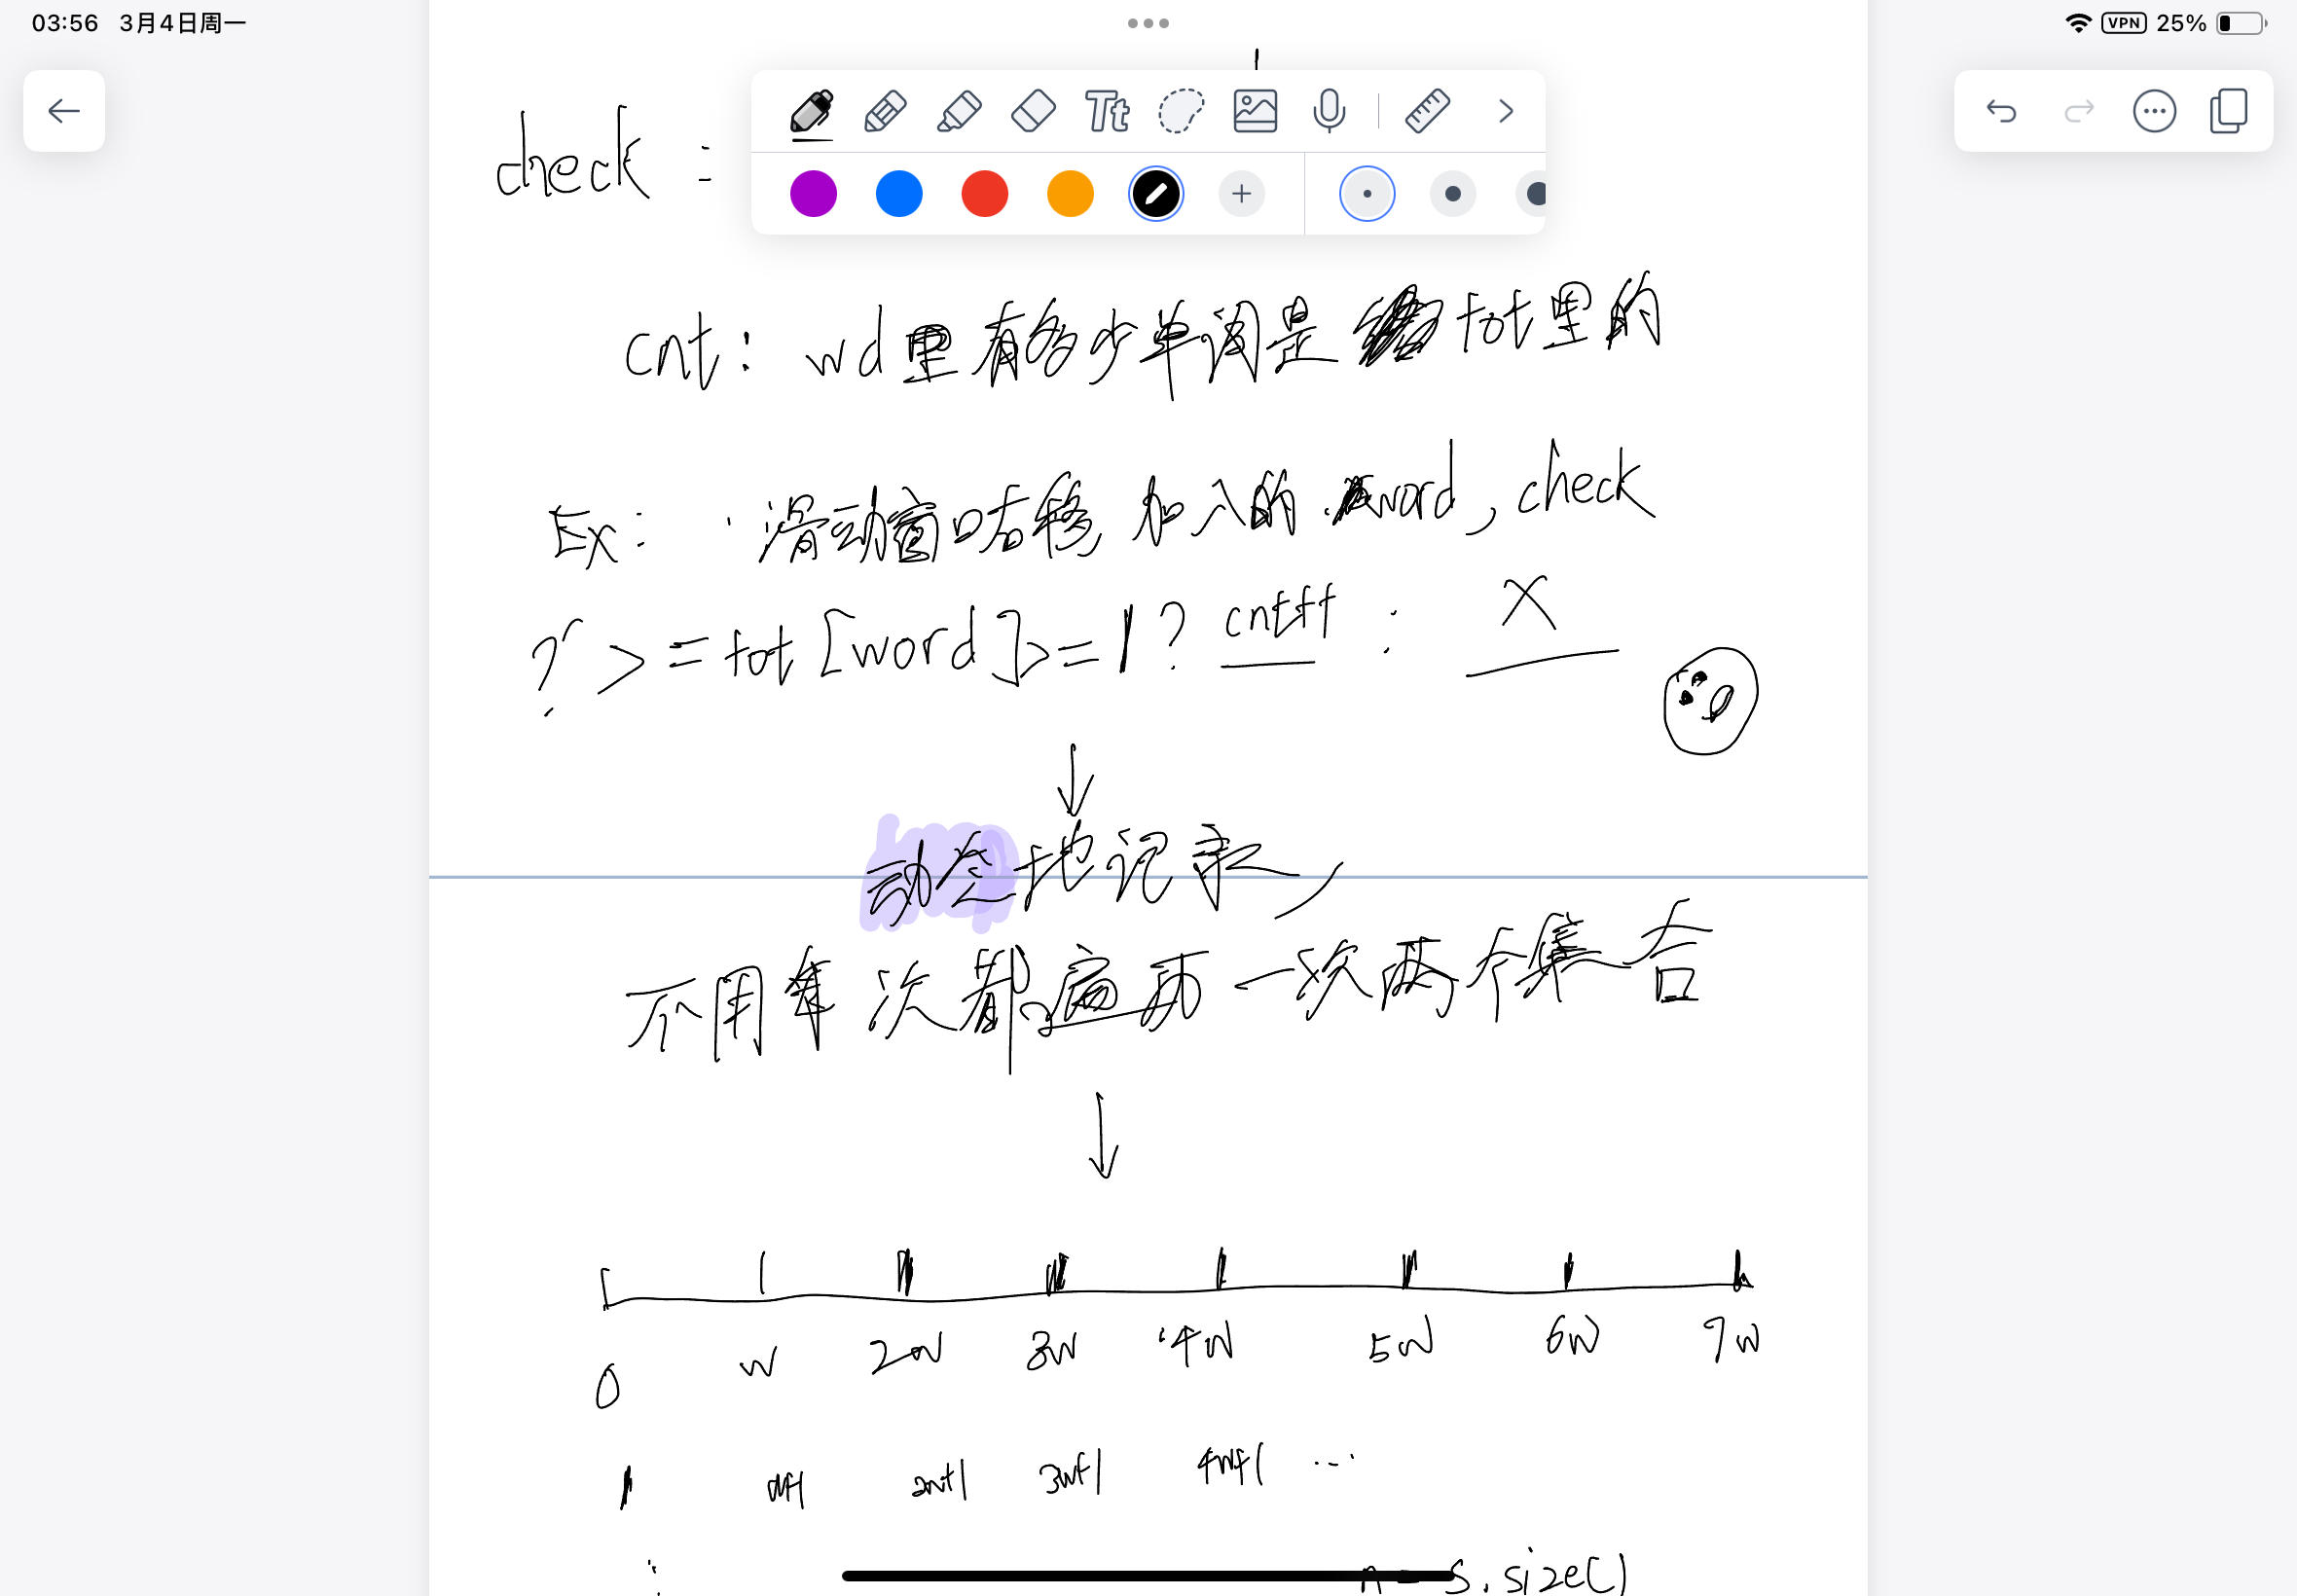 03:56 3月4日周一
VPN 25%
Tt
check :
cnt: wd里有多少单词是tot里的
Ex: 滑动窗口右移 加入的 word, check
? >= tot[word] >= 1 ? cnt++ : X
动态地记录,
不用每次都遍历一次两个集合
0 w 2w 3w 4w 5w 6w 7w
1 w+1 2w+1 3w+1 4w+1 ...
n = s.size()